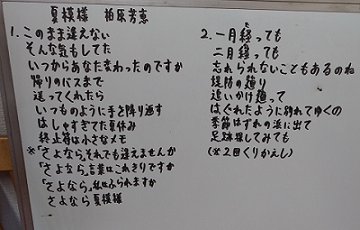 夏模様 柏原芳恵
1. このまま逢えない
そんな気もしてた
いつからあなた変わったのですか
帰りのバスまで
送ってくれたら
いつものように手を降り返す
はしゃぎすぎてた夏休み
終止符は小さなメモ
※「さよなら」それでも逢えませんか
「さよなら」言葉はこれきりですか
「さよなら」私はふられますか
さよなら夏模様
2. 一月経っても
二月経っても
忘れられないこともあるのね
堤防の通り
追いかけ通って
はぐれたように別れてゆくの
季節はずれの浜に出て
足跡探してみても
(※2回くりかえし)